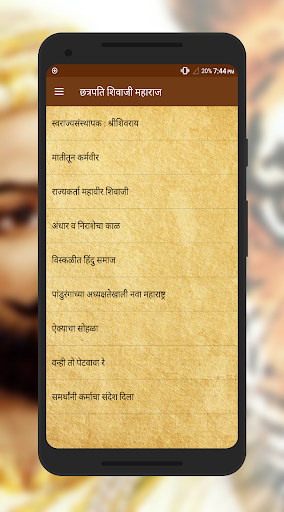 20% 7:44 PM
छत्रपति शिवाजी महाराज
स्वराज्यसंस्थापक : श्रीशिवराय
मातीतून कर्मवीर
राज्यकर्ता महावीर शिवाजी
अंधार व निराशेचा काळ
विस्कळीत हिंदु समाज
पांडुरंगाच्या अध्यक्षतेखाली नवा महाराष्ट्र
ऐक्याचा सोहळा
वन्ही तो पेटवावा रे
समर्थांनी कर्माचा संदेश दिला